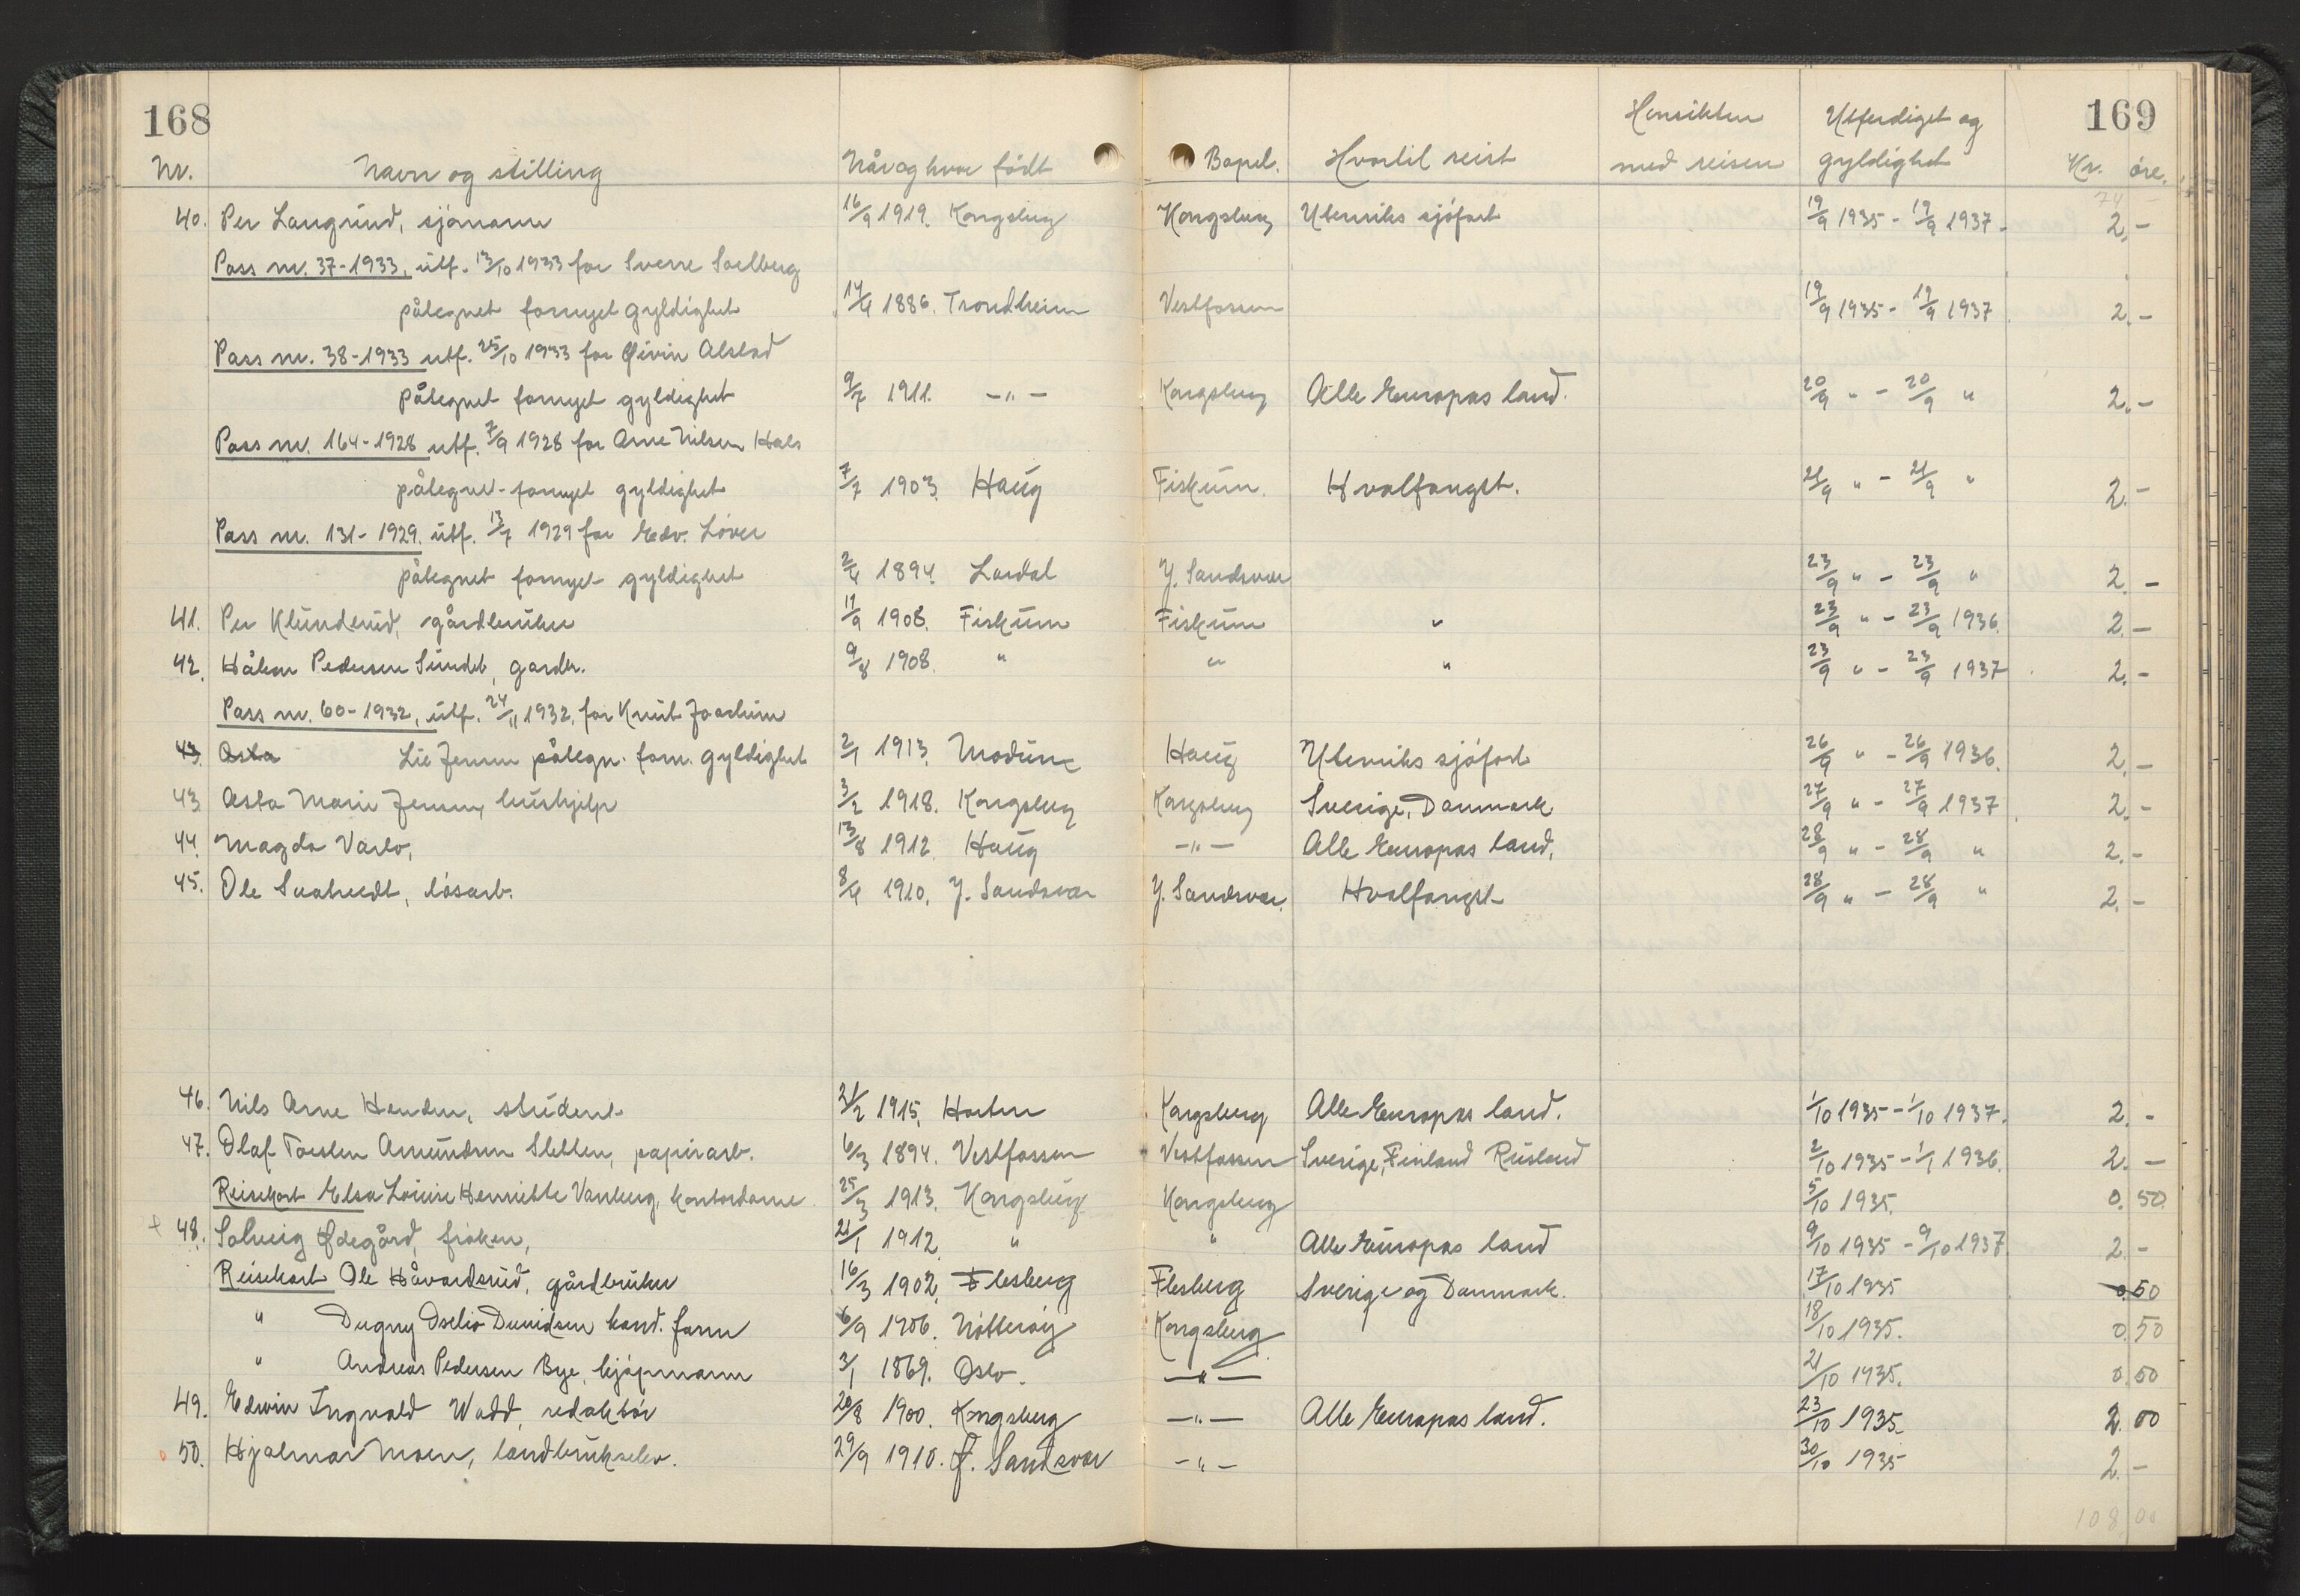 168
169
Nr. Navn og stilling Når og hvor født Bopel. Hvortil reist Hensikten med reisen Utferdiget og gyldighet Kr. øre.
74 -
40. Per Langrud, sjømann 16/9 1919. Kongsberg Kongsberg Utenriks sjøfart 19/9 1935 - 19/9 1937 - 2. -
Pass nr. 37-1933, utf. 13/10 1933 for Sverre Soelberg
påtegnet fornyet gyldighet 14/4 1886. Trondheim Vestfossen 19/9 1935 - 19/9 1937 2. -
Pass nr. 38-1933 utf. 25/10 1933 for Øivin Alstad
påtegnet fornyet gyldighet 9/7 1911. -"- Kongsberg Alle Europas land. 20/9 " - 20/9 " 2. -
Pass nr. 164-1928 utf. 7/9 1928 for Arne Nilsen Hals
påtegnet fornyet gyldighet 7/7 1903. Haug Fiskum. Hvalfangst. 21/9 " - 21/9 " 2. -
Pass nr. 131-1929. utf. 13/7 1929 for Edv. Løver
påtegnet fornyet gyldighet 2/4 1894. Lardal Y. Sandsvær 23/9 " - 23/9 " 2. -
41. Per Klunderud, gårdbruker 11/9 1908. Fiskum Fiskum " 23/9 " - 23/9 1936. 2. -
42. Håkon Pedersen Sundet, gardbr. 9/8 1908. " " " 23/9 " - 23/9 1937 2. -
Pass nr. 60-1932, utf. 24/11 1932, for Knut Joachim
43. Asta Lie Jensen påtegn. forn. gyldighet 2/1 1913. Modum Haug Utenriks sjøfart 26/9 " - 26/9 1936. 2. -
43 Asta Marie Jensen, hushjelp 3/2 1918. Kongsberg Kongsberg Sverige, Danmark 27/9 " - 27/9 1937. 2. -
44. Magda Varlo, 13/8 1912. Haug -"- Alle Europas land, 28/9 " - 28/9 " 2. -
45. Ole løsarb. 8/4 1910. Y. Sandsvær Y. Sandsvær. Hvalfangst 28/9 " - 28/9 " 2. -
46. Nils Arne Henden, student 21/2 1915. Horten Kongsberg Alle Europas land. 1/10 1935 - 1/10 1937. 2. -
47. Olaf Torsten Amundsen Sletten, papirarb. 6/3 1894. Vestfossen Vestfossen Sverige, Finland Rusland 2/10 1935 - 1/1 1936. 2. -
Reisekort Elsa Louise Henriette Vanberg, kontordame 25/3 1913. Kongsberg Kongsberg 5/10 1935. 0. 50
+ 48. Solveig Ødegård, frøken, 21/1 1912. " " Alle Europas land 9/10 1935 - 9/10 1937 2. -
Reisekort Ole Håvardsrud, gårdbruker 16/3 1902. Flesberg Flesberg Sverige og Danmark. 17/10 1935 0. 50
" Dagny Davidsen kand. farm 6/9 1906. Nøtterøy Kongsberg 18/10 1935. 0. 50
" Andreas Pedersen Bye, kjøpmann 3/1 1869. Oslo. -"- 21/10 1935. 0. 50
49. Edwin Ingvald Wadd, redaktør 20/8 1900. Kongsberg -"- Alle Europas land. 23/10 1935. 2. 00
50. Hjalmar Moen, landbrukselev. 29/9 1910. Ø. Sandsvær -"- 30/10 1935 2. -
108 00